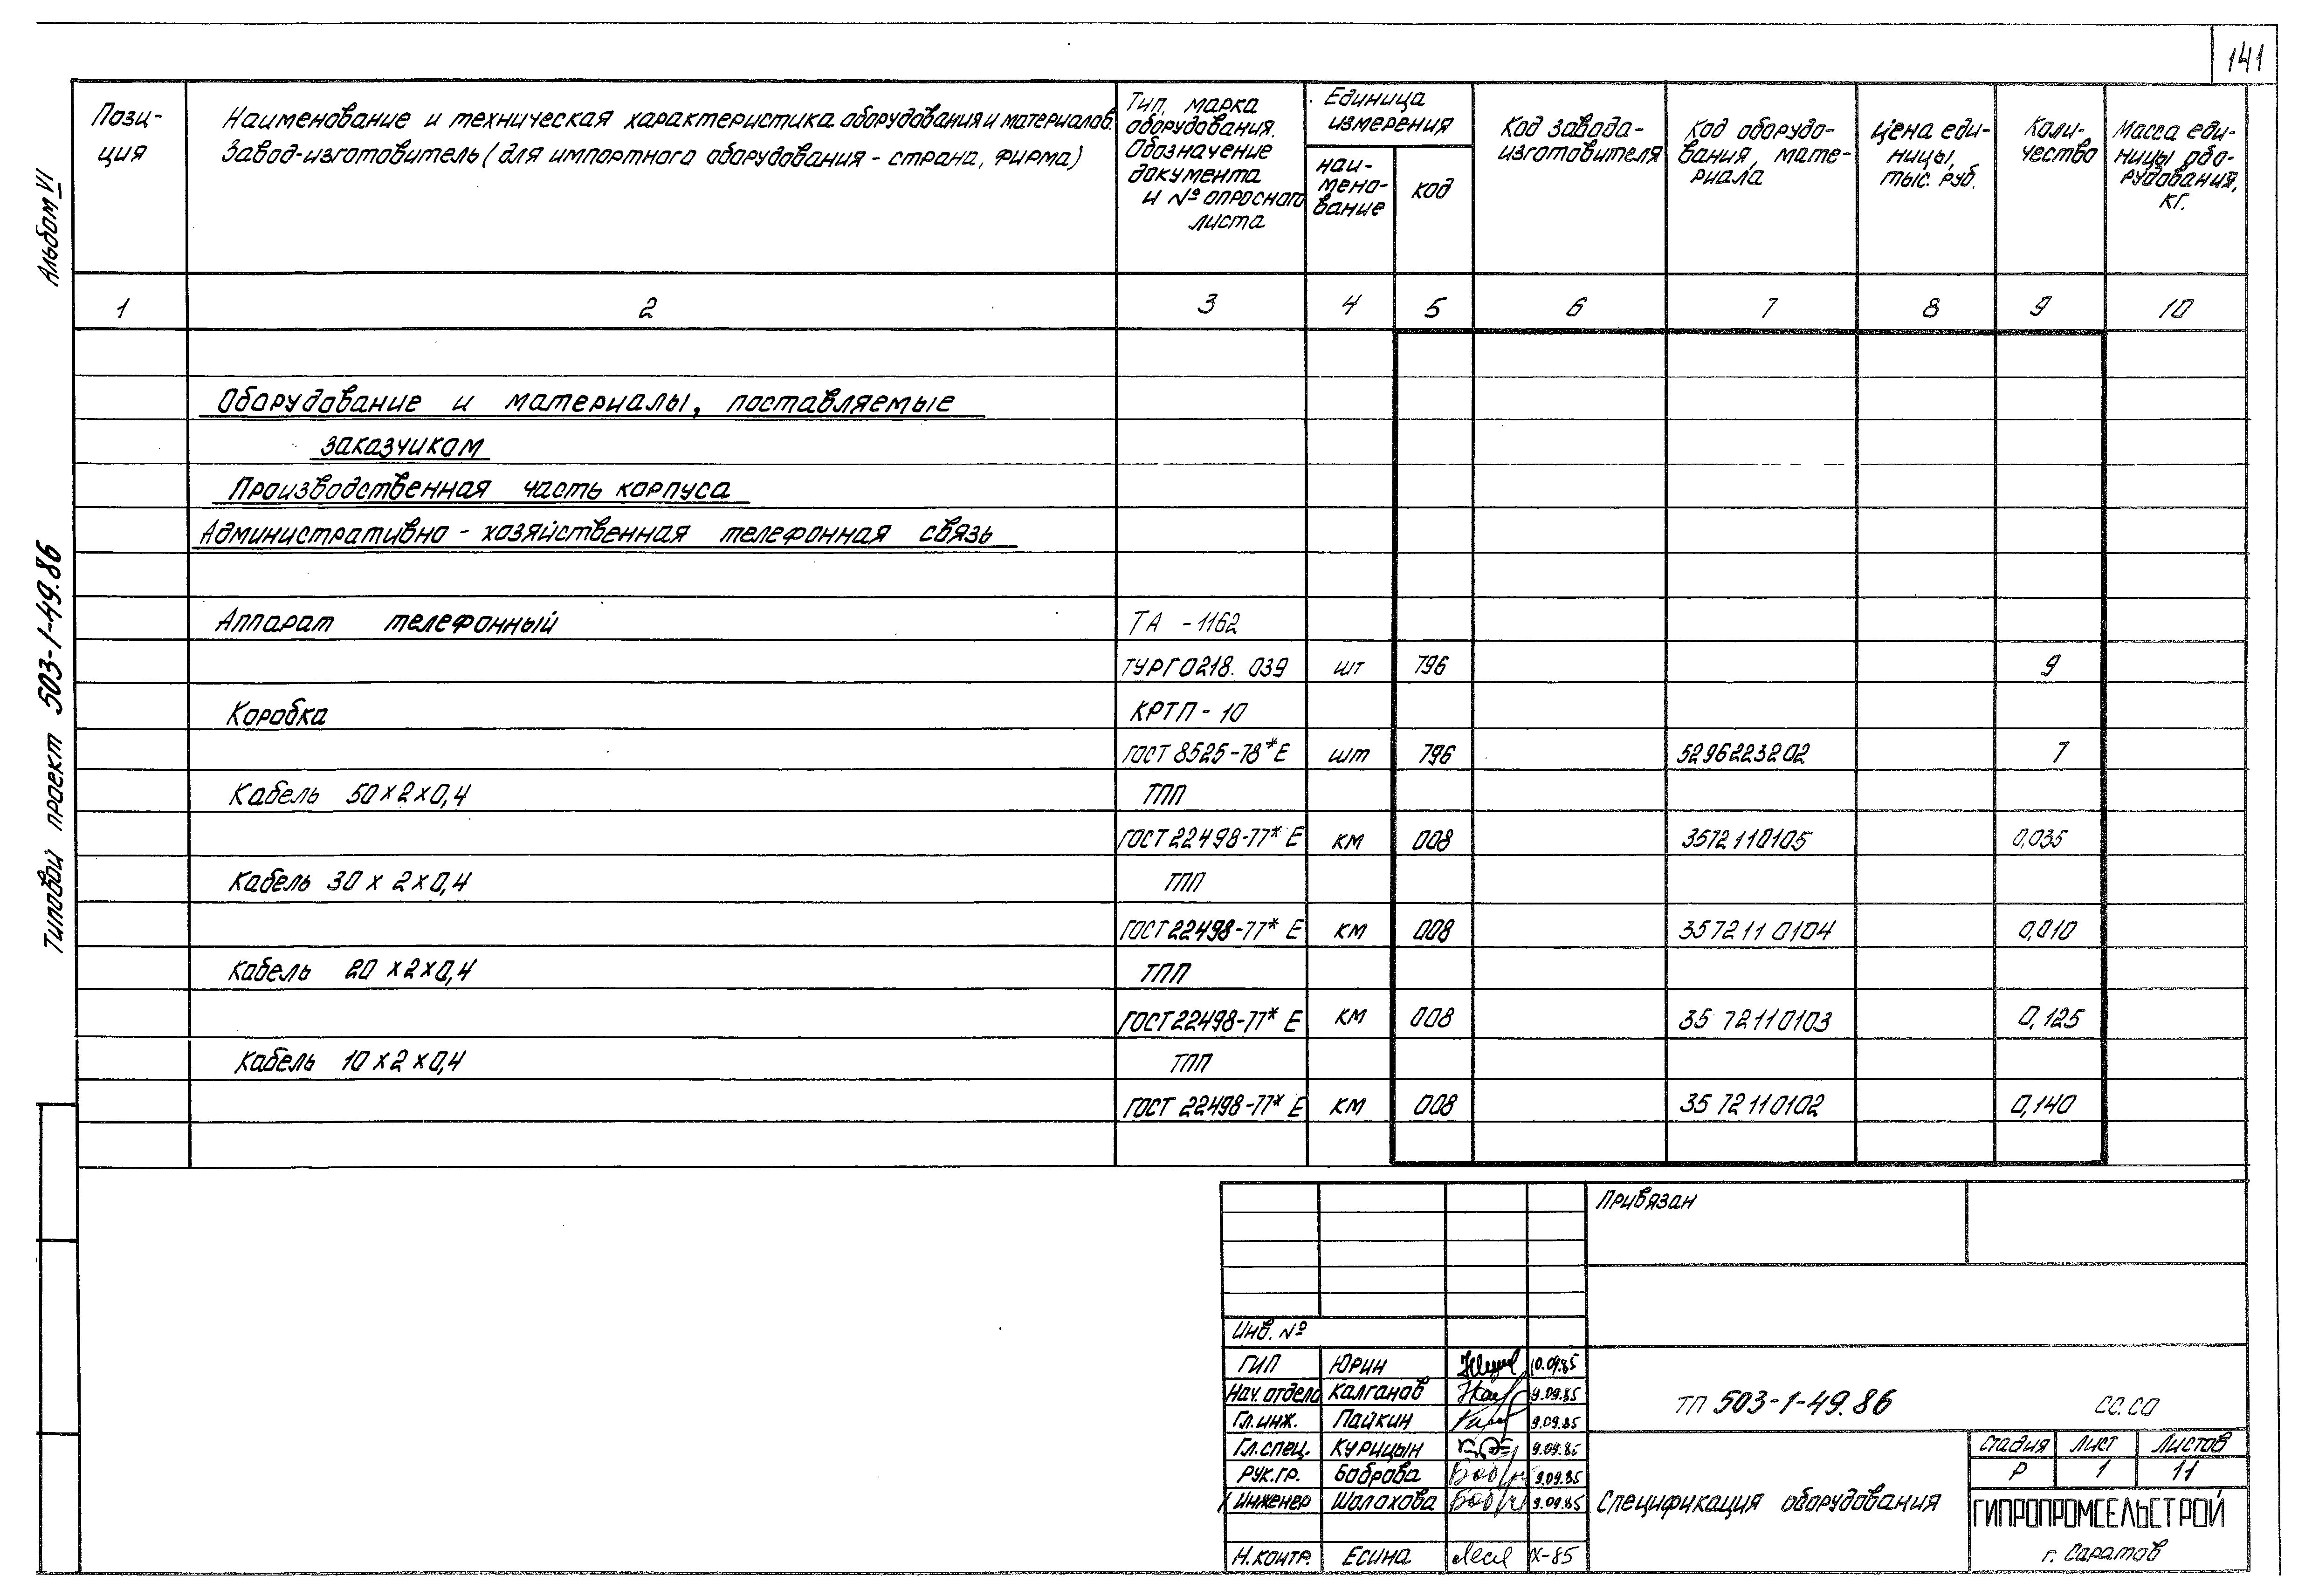 141
Альбом VI
Типовой проект 503-1-49.86
Пози-
ция
Наименование и техническая характеристика оборудования и материалов.
Завод-изготовитель (для импортного оборудования - страна, фирма)
Тип, марка
оборудования.
Обозначение
документа
и № опросного
листа
Единица
измерения
наи-
мено-
вание
код
Код завода-
изготовителя
Код оборудо-
вания, мате-
риала
Цена еди-
ницы,
тыс. руб.
Коли-
чество
Масса еди-
ницы обо-
рудования,
кг.
1 2 3 4 5 6 7 8 9 10
Оборудование и материалы, поставляемые
заказчиком
Производственная часть корпуса
Административно - хозяйственная телефонная связь
Аппарат телефонный ТА - 1162
ТУРГ0218. 039 шт 796 9
Коробка КРТП - 10
ГОСТ 8525-78*Е шт 796 5296223202 7
Кабель 50×2×0,4 ТПП
ГОСТ 22498-77* Е км 008 3572110105 0,035
Кабель 30×2×0,4 ТПП
ГОСТ 22498-77* Е км 008 3572110104 0,010
Кабель 20×2×0,4 ТПП
ГОСТ 22498-77* Е км 008 3572110103 0,125
Кабель 10×2×0,4 ТПП
ГОСТ 22498-77* Е км 008 3572110102 0,140
Привязан
Инв. №
ГИП Юрин 10.09.85
Нач. отдела Калганов 9.09.85
Гл. инж. Пайкин 9.09.85
Гл. спец. Курицын 9.09.85
Рук. гр. Боброва 9.09.85
Инженер Шалахова 9.09.85
Н. контр. Есина IX-85
ТП 503-1-49.86 СС.СО
Спецификация оборудования
Стадия Лист Листов
Р 1 11
ГИПРОПРОМСЕЛЬСТРОЙ
г. Саратов